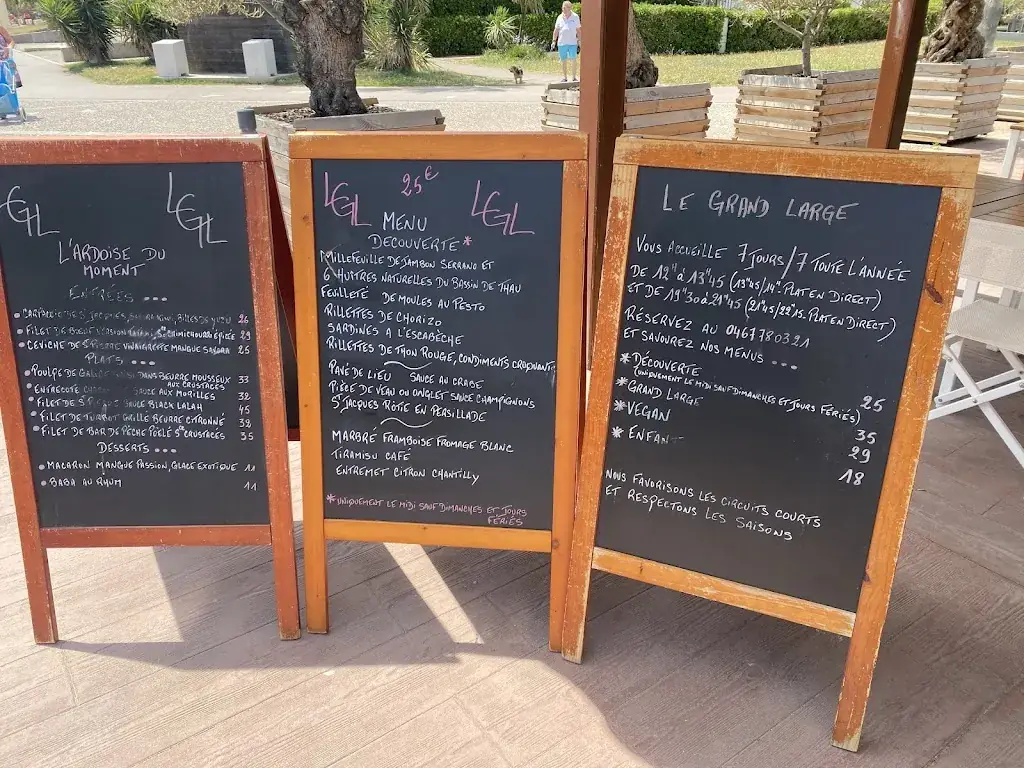 LGL LGL
L'ARDOISE DU
MOMENT
ENTRÉES ...
• CARPACCIO DE ST JACQUES, 26
• FILET DE BŒUF CHIMICHOURI ÉPICÉE 29
• CEVICHE DE ST PIERRE VINAIGRETTE MANGUE 25
PLATS ...
• POULPE DE DANS BEURRE MOUSSEUX 33
AUX CRUSTACÉS
• ENTRECÔTE SAUCE AUX MORILLES 38
• FILET DE ST PIERRE SAUCE BLACK LALAH 32
• FILET DE TURBOT GRILLÉ BEURRE CITRONNÉ 45
32
• FILET DE BAR DE PÊCHE POÊLÉ SCE CRUSTACÉS 35
DESSERTS ...
• MACARON MANGUE PASSION, GLACE EXOTIQUE 11
• BABA AU RHUM 11
LGL 25€ LGL
MENU
DECOUVERTE*
MILLEFEUILLE DE JAMBON SERRANO ET
6 HUÎTRES NATURELLES DU BASSIN DE THAU
FEUILLETÉ DE MOULES AU PESTO
RILLETTES DE CHORIZO
SARDINES A L'ESCABÈCHE
RILLETTES DE THON ROUGE, CONDIMENTS CROQUANTS
PAVÉ DE LIEU SAUCE AU CRABE
PIÈCE DE VEAU OU ONGLET SAUCE CHAMPIGNONS
ST JACQUES RÔTIE EN PERSILLADE
MARBRÉ FRAMBOISE FROMAGE BLANC
TIRAMISU CAFÉ
ENTREMET CITRON CHANTILLY
* UNIQUEMENT LE MIDI SAUF DIMANCHES ET JOURS
FÉRIÉS
LE GRAND LARGE
VOUS ACCUEILLE 7 JOURS/7 TOUTE L'ANNÉE
DE 12H À 13H45 (13H45/14H. PLAT EN DIRECT)
ET DE 19H30 À 21H45 (21H45/22H15. PLAT EN DIRECT)
RÉSERVEZ AU 0467780321
ET SAVOUREZ NOS MENUS ...
* DÉCOUVERTE 25
(UNIQUEMENT LE MIDI SAUF DIMANCHES ET JOURS FÉRIÉS)
* GRAND LARGE 35
* VEGAN 29
* ENFANT 18
NOUS FAVORISONS LES CIRCUITS COURTS
ET RESPECTONS LES SAISONS